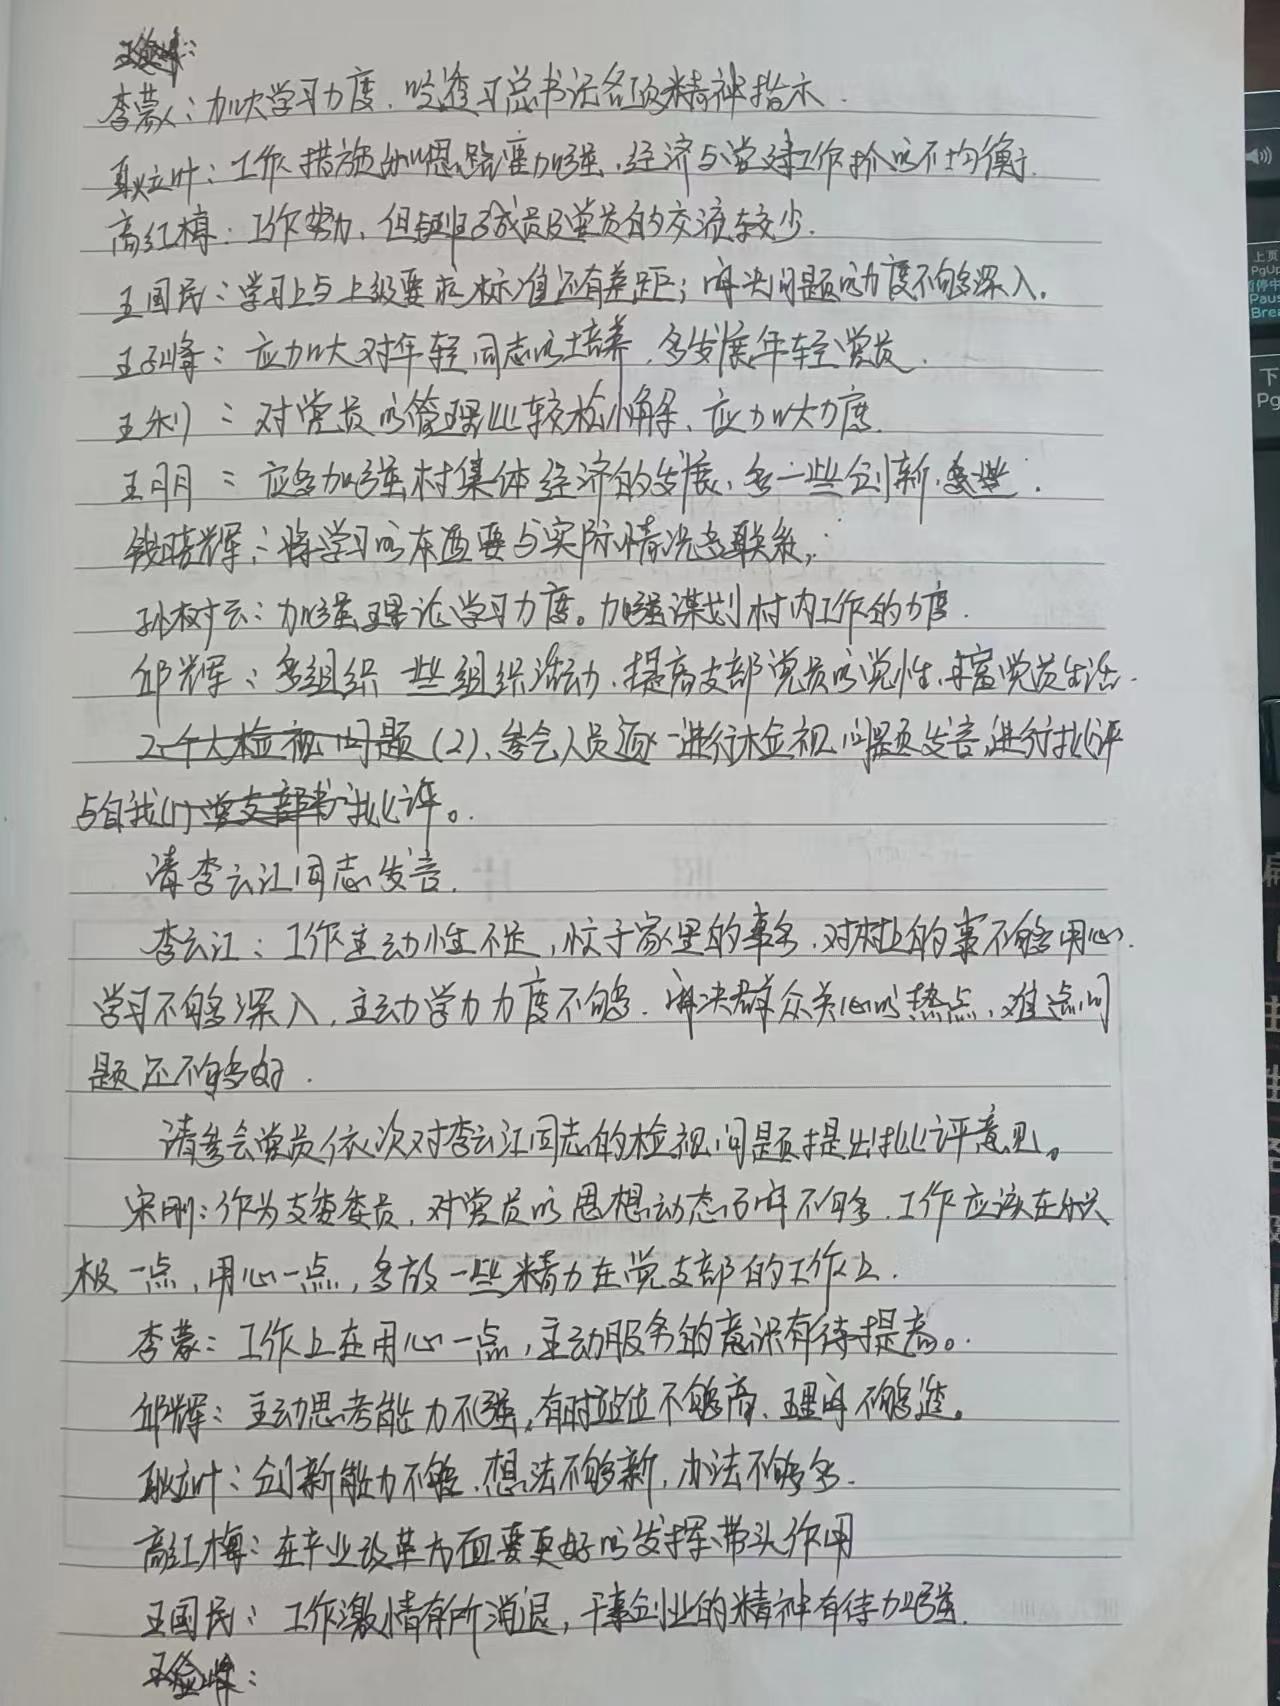 李蒙：加大学习力度，吃透习总书记各项精神指示．
耿立叶：工作措施的思路要加强，经济与党建工作抓的不均衡．
高红梅：工作努力，但与班子成员及党员的交流较少．
王国民：学习上与上级要求标准还有差距；解决问题的力度不够深入．
王峰：应加大对年轻同志的培养，多发展年轻党员．
王利：对党员的管理比较松懈，应加大力度．
王月月：应多加强村集体经济的发展，多一些创新．
钱晓辉：将学习的东西要与实际情况去联系；
孙树云：加强理论学习力度。加强谋划村内工作的力度．
邱辉：多组织一些组织活动，提高支部党员的党性，丰富党员生活．
2个人检视问题（2）、参会人员逐一进行检视问题发言，进行批评
与自我们党支部书批评。
请李云江同志发言．
李云江：工作主动性不足，忙于家里的事多，对村上的事不够用心．
学习不够深入，主动学力力度不够．解决群众关心的热点，难点问
题还不够多好．
请参会党员依次对李云江同志的检视问题提出批评意见。
宋刚：作为支委委员，对党员的思想动态了解不够．工作应该在积
极一点，用心一点，多放一些精力在党支部的工作上．
李蒙：工作上在用心一点，主动服务的意识有待提高。
邱辉：主动思考能力不强，有时站位不够高、理解不够透。
耿立叶：创新能力不够．想法不够新，办法不够多．
高红梅：在产业改革方面要更好的发挥带头作用
王国民：工作激情有所消退，干事创业的精神有待加强．